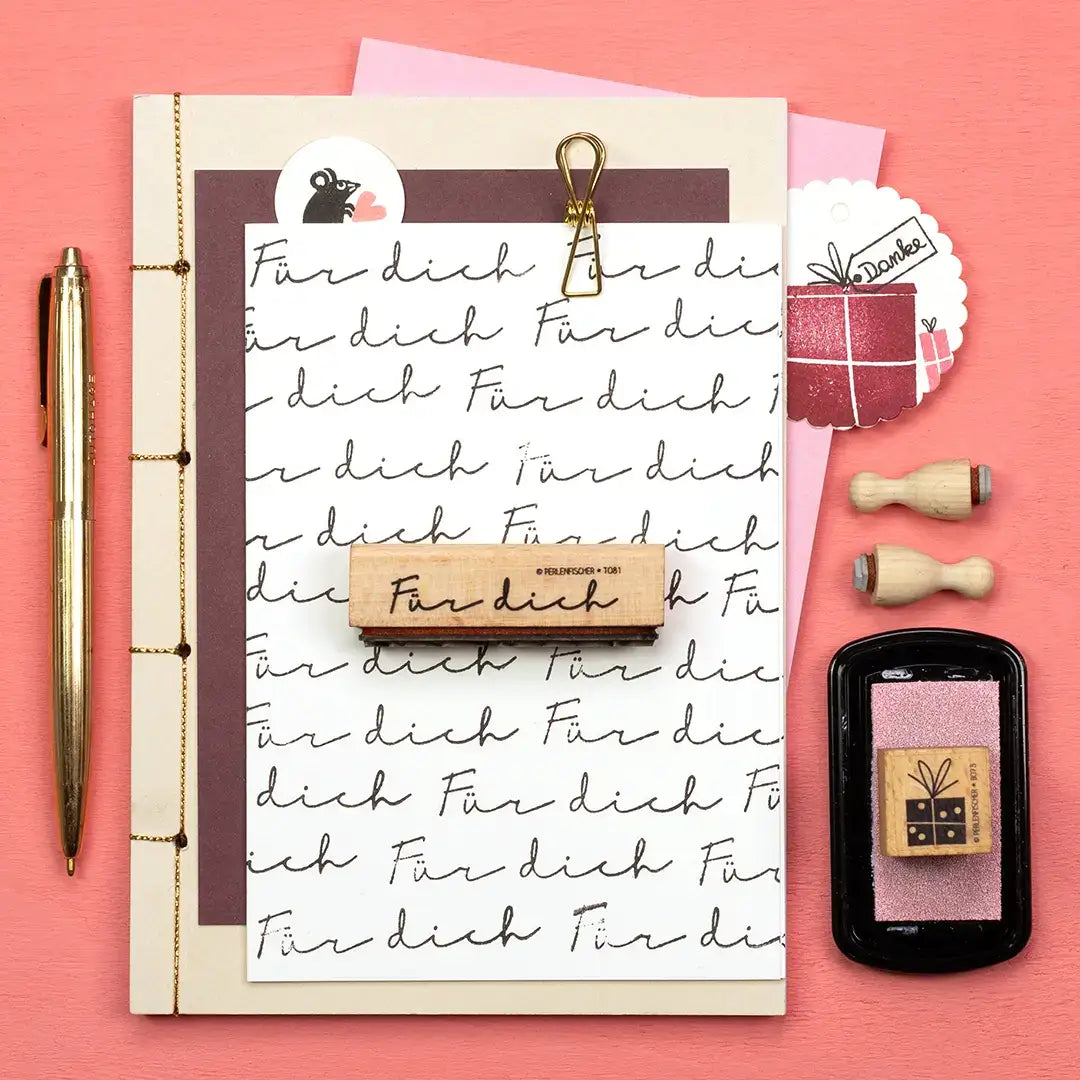 Für dich Für dic
ür dich Für dic
dich Für dich F
r dich Für dich
r dich Für dich
dich
h Fü
© PERLENFISCHER ★ T081
Für dich
Für dich Für dic
Für dich Für dic
dich Für dich Fü
ich Für dich Für
Für dich Für dic
Danke
© PERLENFISCHER ★ B073